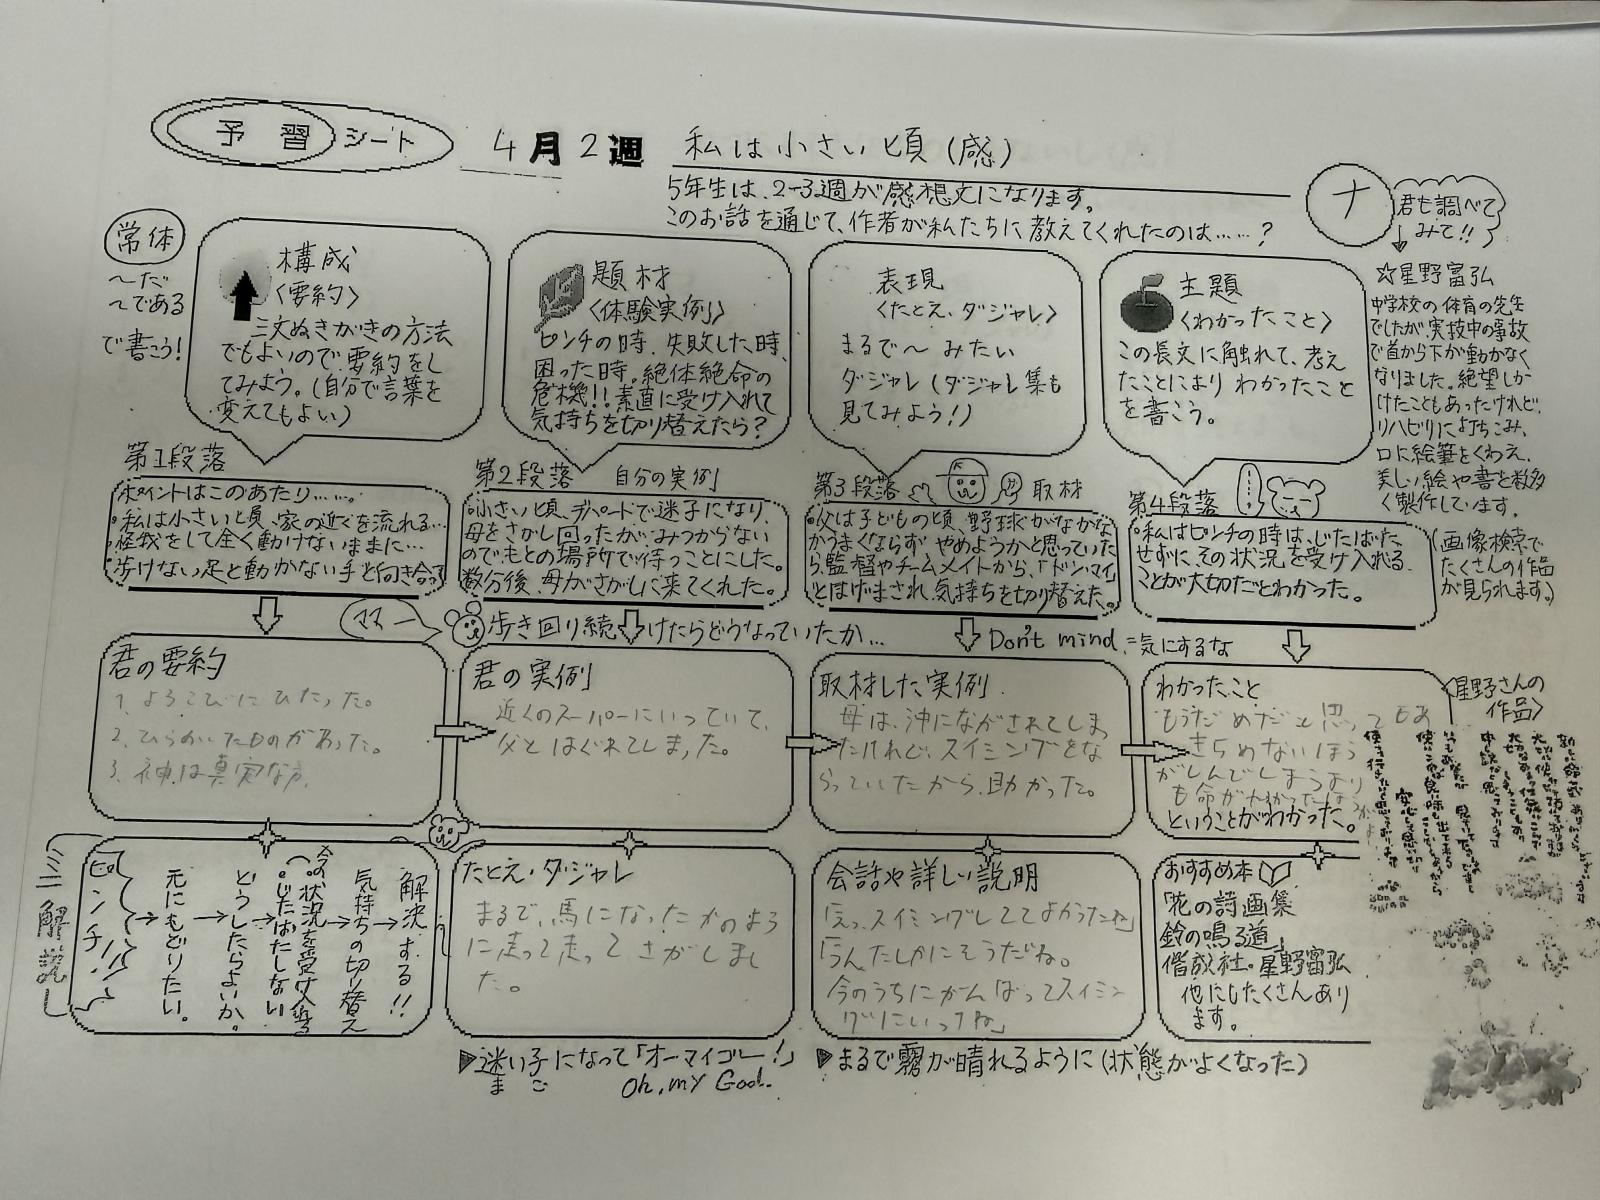 予習シート
4月2週 私は小さい頃(感)
5年生は、2-3週が感想文になります。
このお話を通じて、作者が私たちに教えてくれたのは……?
ナ
君も調べて
みて!!
常体
〜だ
〜である
で書こう!
構成
〈要約〉
三文ぬきがきの方法
でもよいので、要約をし
てみよう。(自分で言葉を
変えてもよい)
題材
〈体験実例〉
ピンチの時、失敗した時、
困った時。絶体絶命の
危機!!素直に受け入れて
気持ちを切り替えたら?
表現
〈たとえ、ダジャレ〉
まるで〜みたい
ダジャレ(ダジャレ集も
見てみよう!)
主題
〈わかったこと〉
この長文に触れて、考え
たことによりわかったこと
を書こう。
☆星野富弘
中学校の体育の先生
でしたが、実技中の事故
で首から下が動かなく
なりました。絶望しか
けたこともあったけれど、
リハビリに打ちこみ、
口に絵筆をくわえ、
美しい絵や書を数多
く製作しています。
(画像検索で
たくさんの作品
が見られます。)
第1段落
ポイントはこのあたり……。
・私は小さい頃、家の近くを流れる…
・怪我をして全く動けないままに…
・歩けない足と動かない手と向き合う
第2段落 自分の実例
・小さい頃、デパートで迷子になり、
母をさがし回ったがみつからない
のでもとの場所で待つことにした。
数分後、母がさがしに来てくれた。
第3段落 取材
・父は子どもの頃、野球がなかな
かうまくならず やめようかと思っていた
ら、監督やチームメイトから、「ドンマイ」
とはげまされ、気持ちを切り替えた。
第4段落
・私はピンチの時は、じたばた
せずに、その状況を受け入れる
ことが大切だとわかった。
ママー
歩き回り続けたらどうなっていたか…
Don't mind.=気にするな
君の要約
1. よろこびにひたった。
2. ひらめいたものがあった。
3. 神は真実な方
君の実例
近くのスーパーにいっていて、
父とはぐれてしまった。
取材した実例
母は、沖にながされてしまっ
たけれど、スイミングをな
らっていたから、助かった。
わかったこと
もうだめだと思っ
きらめないほう
がしんでしまうより
も命がたすかった
ということがわかった。
〈星野さんの
作品〉
ミニ解説
ピンチ!
→元にもどりたい。
→どうしたらよいか。
→・じたばたしない
・今の状況を受け入れる
→気持ちの切り替え
→解決する!!
たとえ・ダジャレ
まるで、馬になったかのよう
に走って走ってさがしまし
た。
会話や詳しい説明
「えっ、スイミングしててよかったね」
「うんたしかにそうだね。
今のうちにがんばってスイミン
グにいってね」
おすすめ本
「花の詩画集
鈴の鳴る道」
偕成社。星野富弘
他にもたくさんあり
ます。
▶迷い子になって「オーマイゴー!」
まご Oh, my God.
▶まるで霧が晴れるように(状態がよくなった)